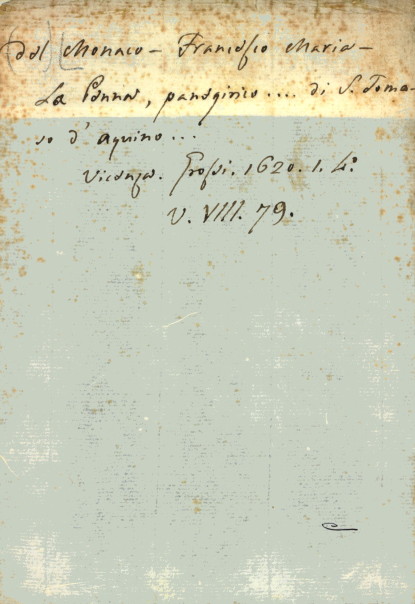 Del Monaco - Francesco Maria -
La Penna, panegirico .... di S. Toma-
so d' Aquino ...
Vicenza. Grossi. 1620. 1. 4º
V. VIII. 79.